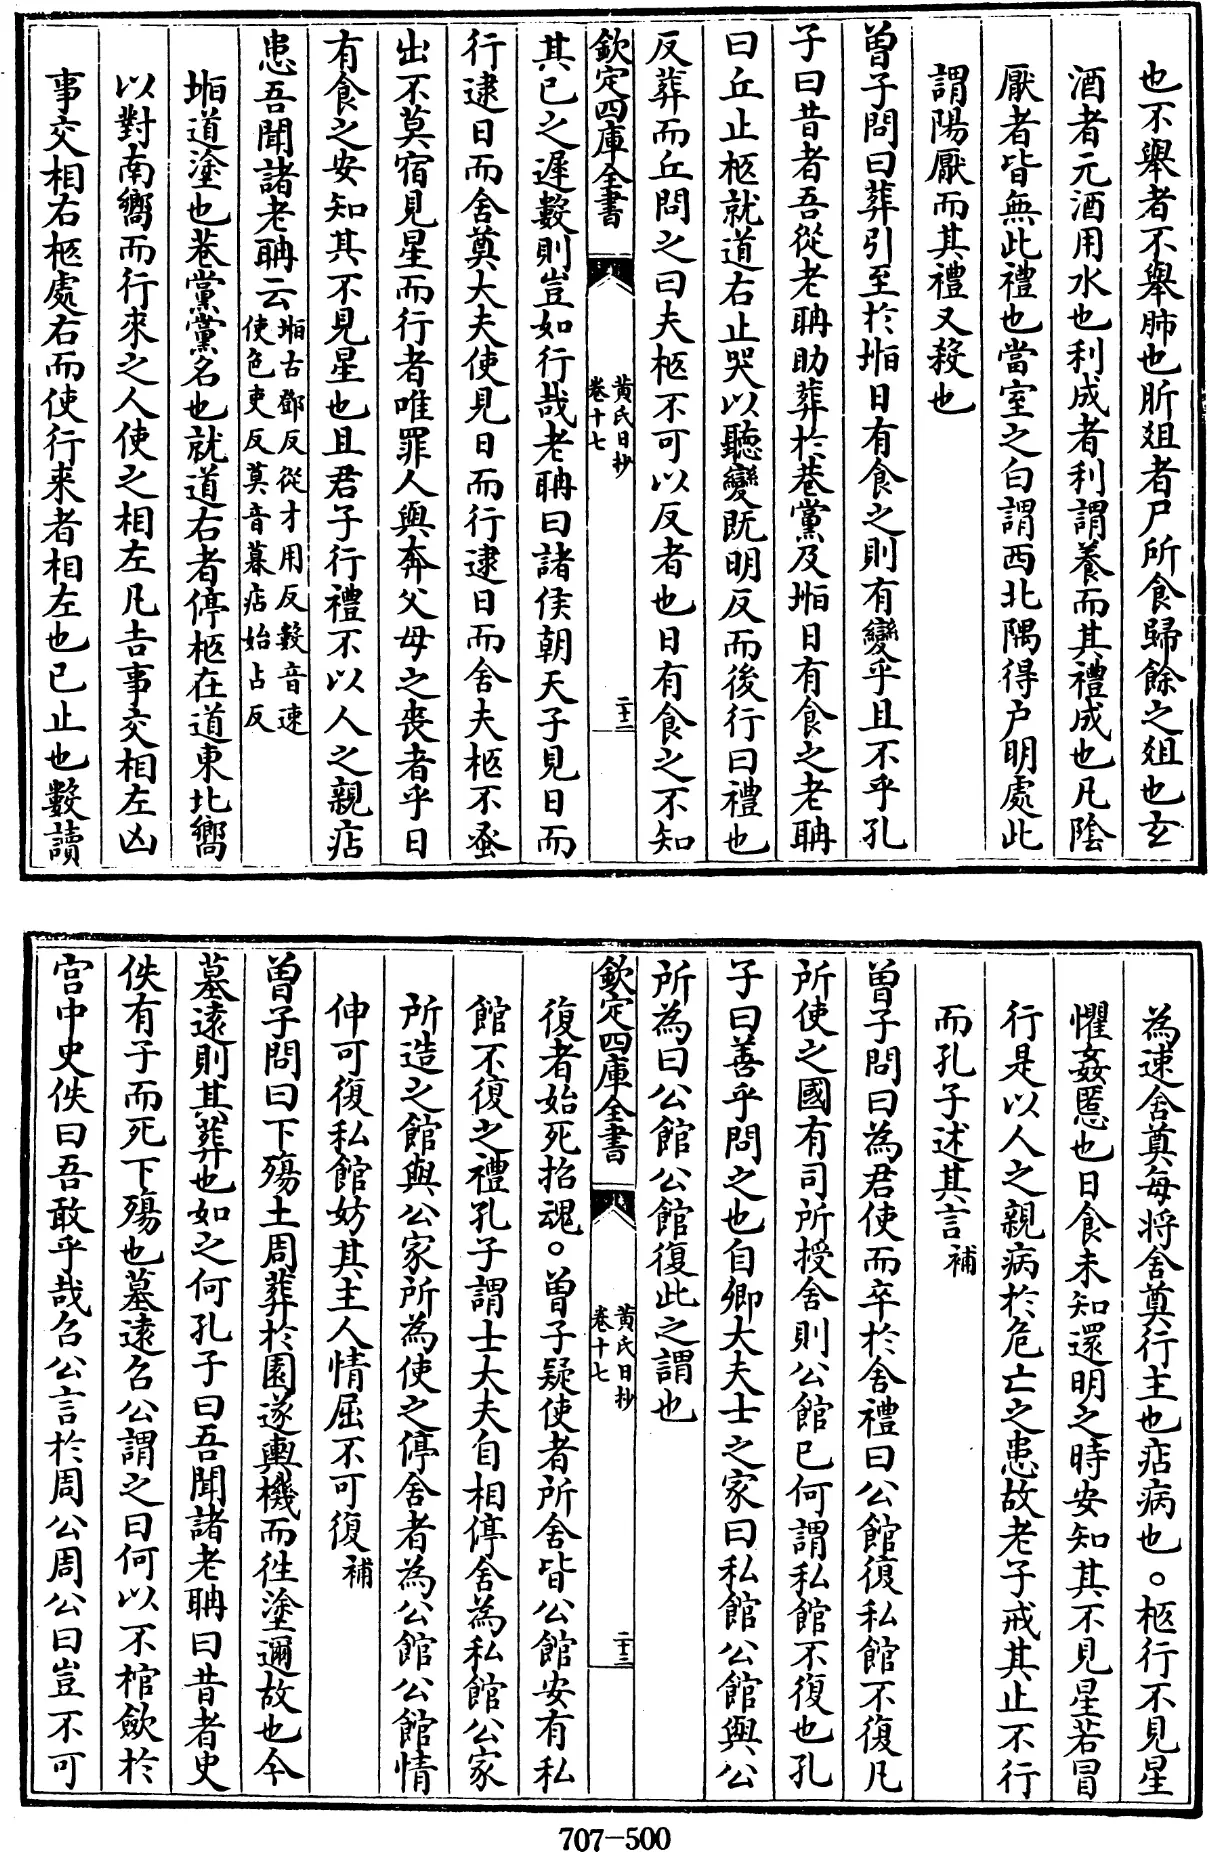 也不舉者不舉肺也肵俎者尸所食歸餘之俎也玄
酒者元酒用水也利成者利謂養而其禮成也凡陰
厭者皆無此禮也當室之白謂西北隅得户明處此
謂陽厭而其禮又殺也
曾子問曰葬引至於堩日有食之則有變乎且不乎孔
子曰昔者吾從老聃助葬於巷黨及堩日有食之老聃
曰丘止柩就道右止哭以聽變既明反而後行曰禮也
反葬而丘問之曰夫柩不可以反者也日有食之不知
欽定四庫全書
黄氏日抄
卷十七
二十二
其已之遲數則豈如行哉老聃曰諸侯朝天子見日而
行逮日而舍奠大夫使見日而行逮日而舍夫柩不蚤
出不莫宿見星而行者唯罪人與奔父母之喪者乎日
有食之安知其不見星也且君子行禮不以人之親痁
患吾聞諸老聃云堩古鄧反從才用反數音速
使色吏反莫音暮痁始占反
堩道塗也巷黨黨名也就道右者停柩在道東北嚮
以對南嚮而行來之人使之相左凡吉事交相左凶
事交相右柩處右而使行来者相左也已止也數讀
為速舍奠每將舍奠行主也痁病也○柩行不見星
懼姦慝也日食未知還明之時安知其不見星若冒
行是以人之親病於危亡之患故老子戒其止不行
而孔子述其言補
曾子問曰為君使而卒於舍禮曰公館復私館不復凡
所使之國有司所授舍則公館已何謂私館不復也孔
子曰善乎問之也自卿大夫士之家曰私館公館與公
所為曰公館公館復此之謂也
欽定四庫全書
黄氏日抄
卷十七
二十三
復者始死招魂○曾子疑使者所舍皆公館安有私
館不復之禮孔子謂士大夫自相停舍為私館公家
所造之館與公家所為使之停舍者為公館公館情
伸可復私館妨其主人情屈不可復補
曾子問曰下殤土周葬於園遂輿機而徃塗邇故也今
墓遠則其葬也如之何孔子曰吾聞諸老聃曰昔者史
佚有子而死下殤也墓遠召公謂之曰何以不棺歛於
宫中史佚曰吾敢乎哉召公言於周公周公曰豈不可
707-500